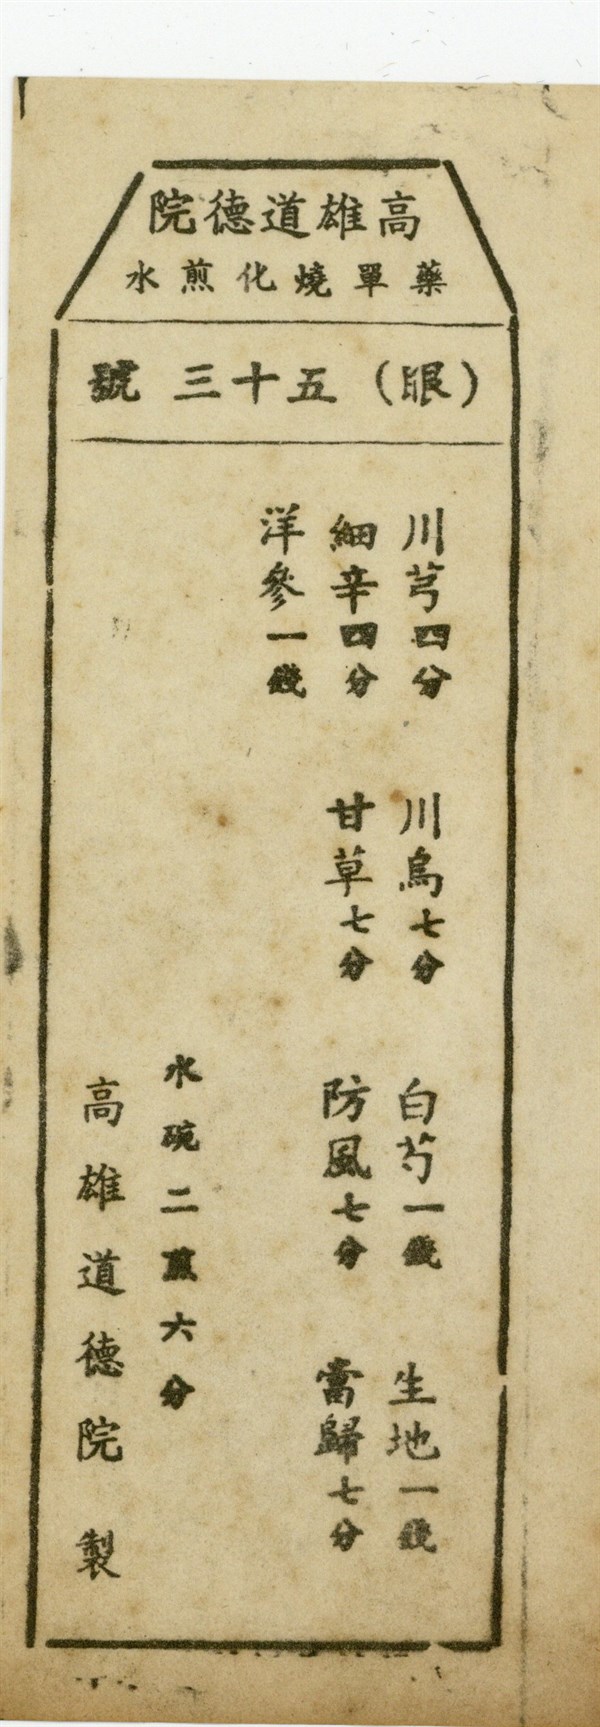 高雄道德院
藥單燒化煎水
（眼）五十三號
川芎四分 川烏七分 白芍一錢 生地一錢
細辛四分 甘草七分 防風七分 當歸七分
洋參一錢
水碗二煎六分
高雄道德院製